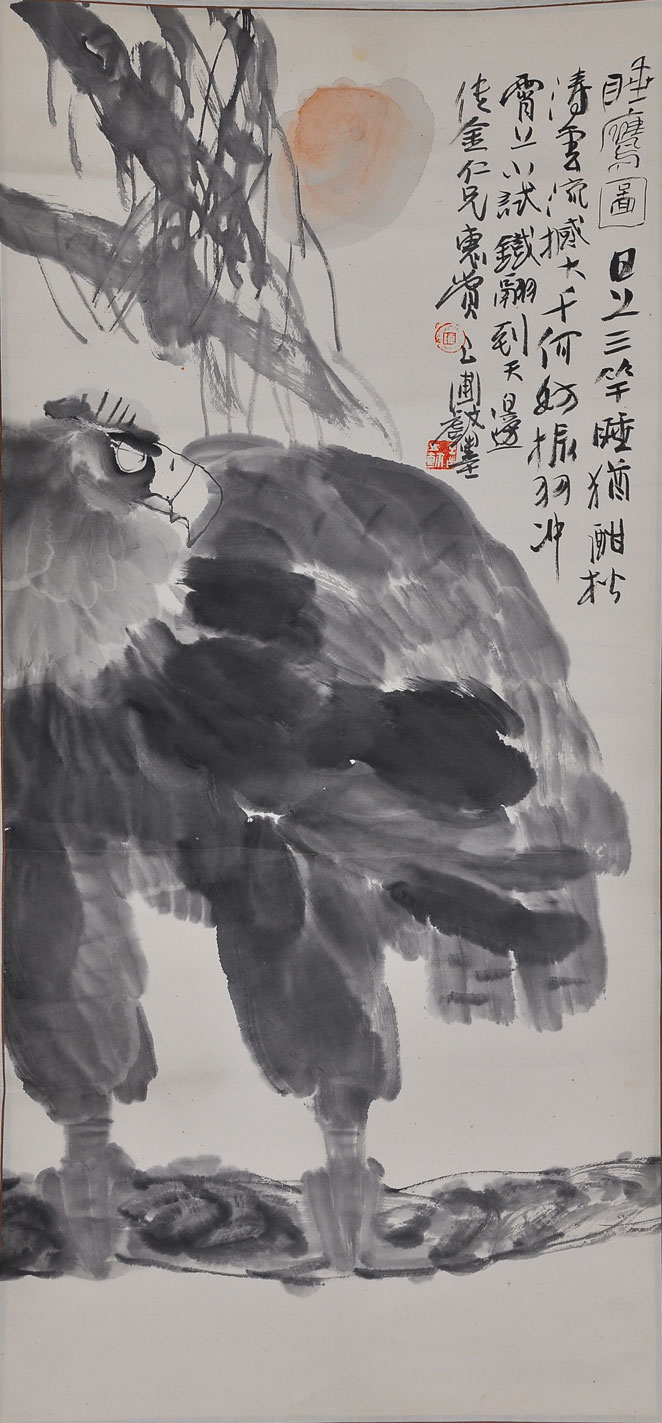 睡鹰圖 日上三竿睡猶酣松
濤雲流撼大千何妨振羽冲
霄上小試鐵翮到天邊
佳金仁兄惠賞